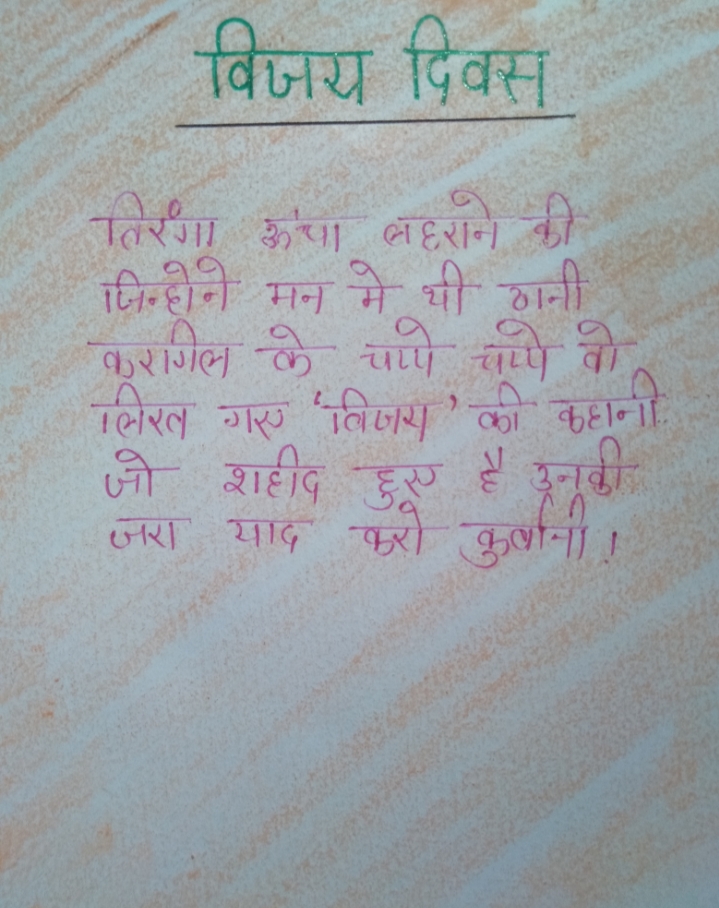 विजय दिवस
तिरंगा ऊंचा लहराने की
जिन्होने मन मे थी ठानी
करागिल के चप्पे चप्पे वो
लिख गए 'विजय' की कहानी
जो शहीद हुए है उनकी
जरा याद करो कुर्बानी।